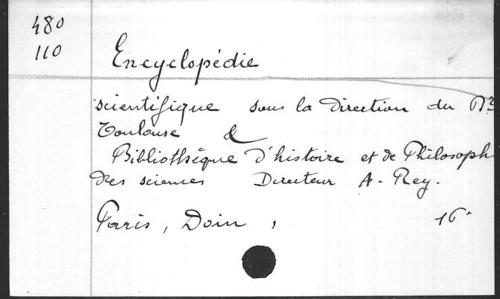 480
110
Encyclopédie
scientifique sous la direction du Dr
Toulouse &
Bibliothèque d'histoire et de Philosoph
des sciences Directeur A. Rey.
Paris, Doin, 16°